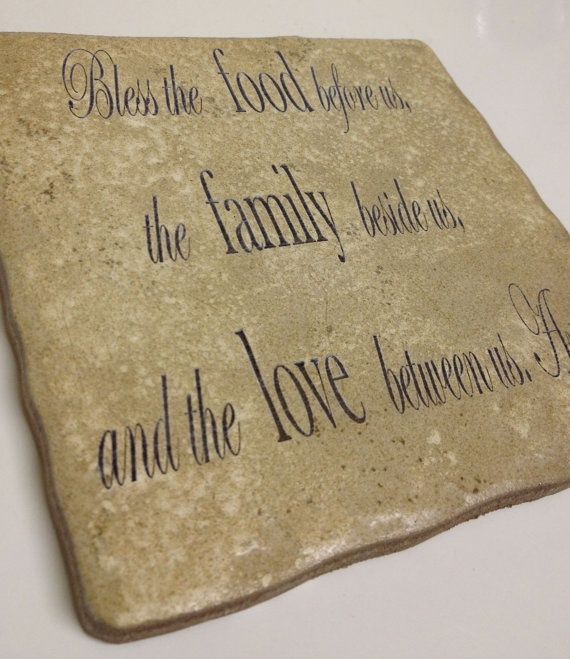 Bless the food before us,
the family beside us,
and the love between us. A